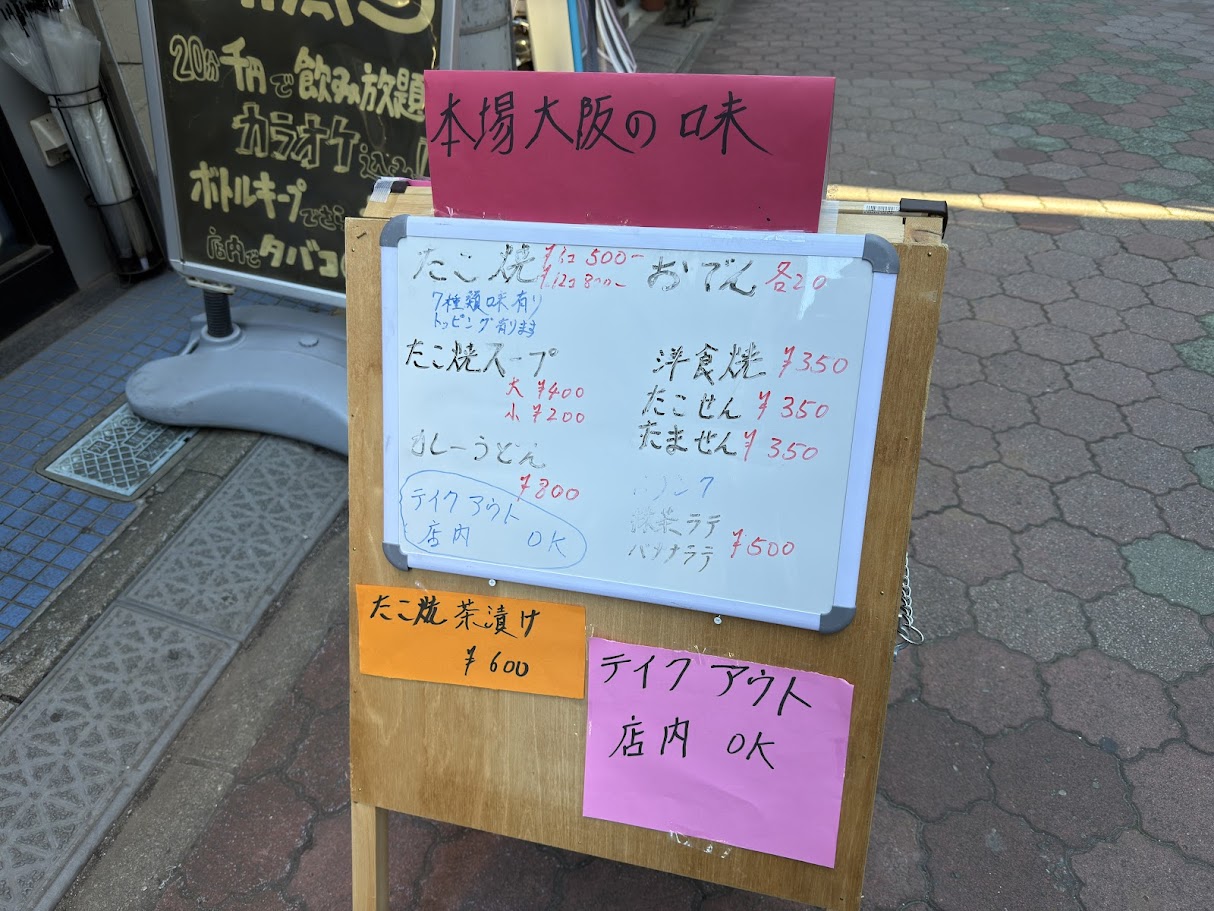 20分千円で飲み放題
カラオケ込み!
ボトルキープできます
店内でタバコ
本場大阪の味
たこ焼 500ー
12コ 800ー
7種類味有り
トッピング有ります
たこ焼スープ
大 ¥400
小 ¥200
カレーうどん
¥800
テイクアウト
店内 OK
おでん 各20
洋食焼 ¥350
たこせん ¥350
たません ¥350
ドリンク
抹茶ラテ
バナナラテ ¥500
たこ焼茶漬け
¥600
テイクアウト
店内 OK